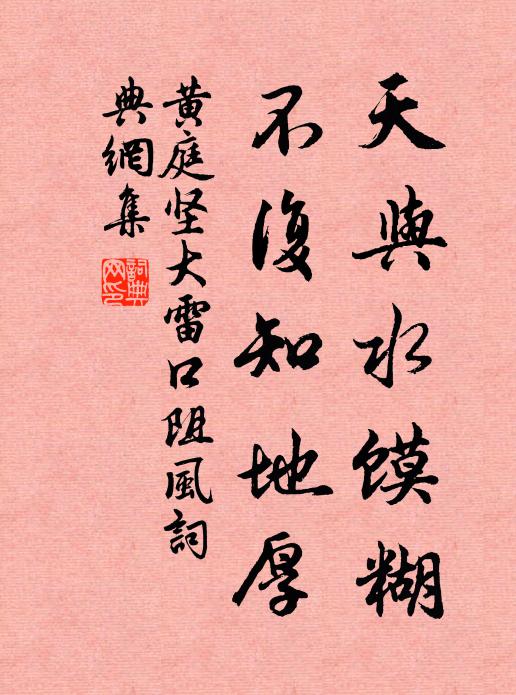 天與水馍糊
不復知地厚
黄庭坚大雷口阻風詞
典網集
詞典網印